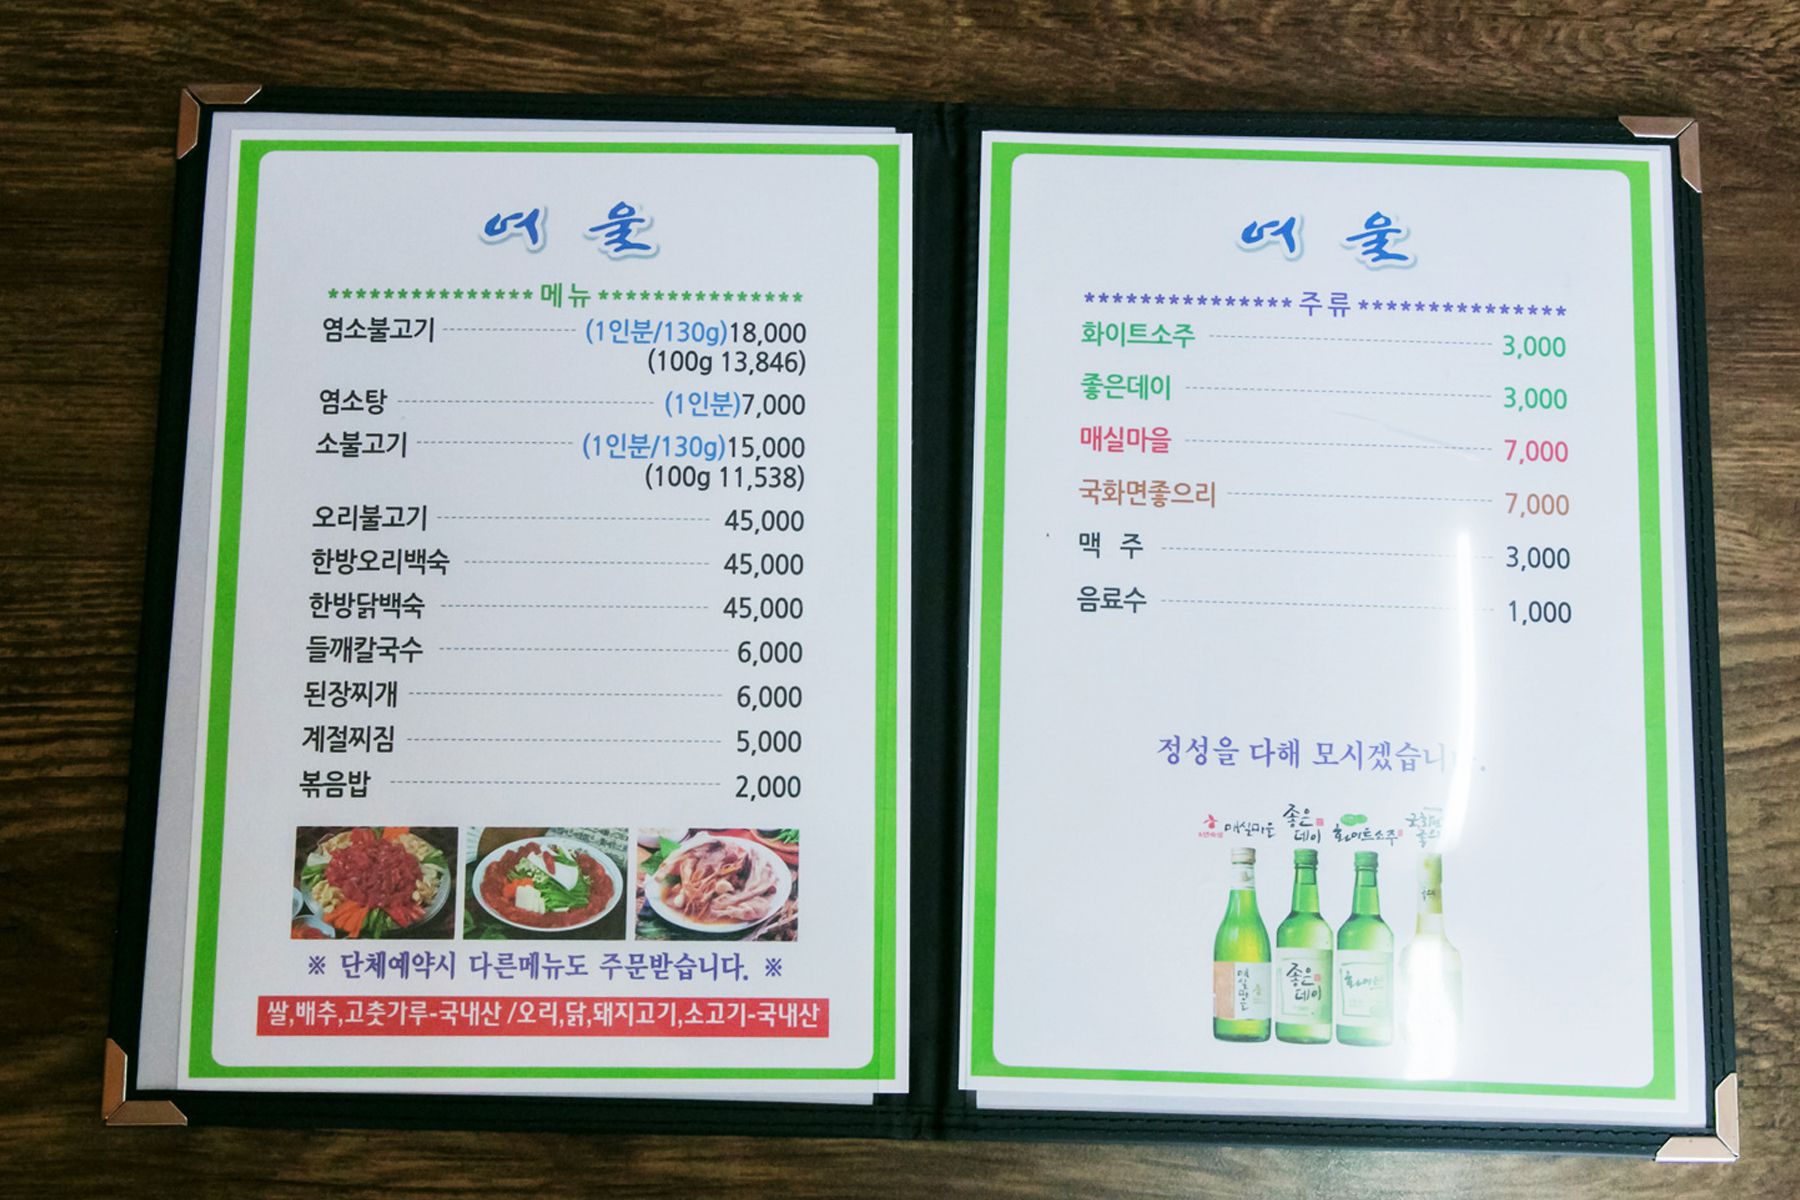 여울
***************메뉴***************
염소불고기 (1인분/130g)18,000
(100g 13,846)
염소탕 (1인분)7,000
소불고기 (1인분/130g)15,000
(100g 11,538)
오리불고기 45,000
한방오리백숙 45,000
한방닭백숙 45,000
들깨칼국수 6,000
된장찌개 6,000
계절찌짐 5,000
볶음밥 2,000
※ 단체예약시 다른메뉴도 주문받습니다. ※
쌀,배추,고춧가루-국내산 /오리,닭,돼지고기,소고기-국내산
여울
***************주류***************
화이트소주 3,000
좋은데이 3,000
매실마을 7,000
국화면좋으리 7,000
맥 주 3,000
음료수 1,000
정성을 다해 모시겠습니다.
매실마을 좋은데이 화이트소주
매실마을 좋은데이 화이트